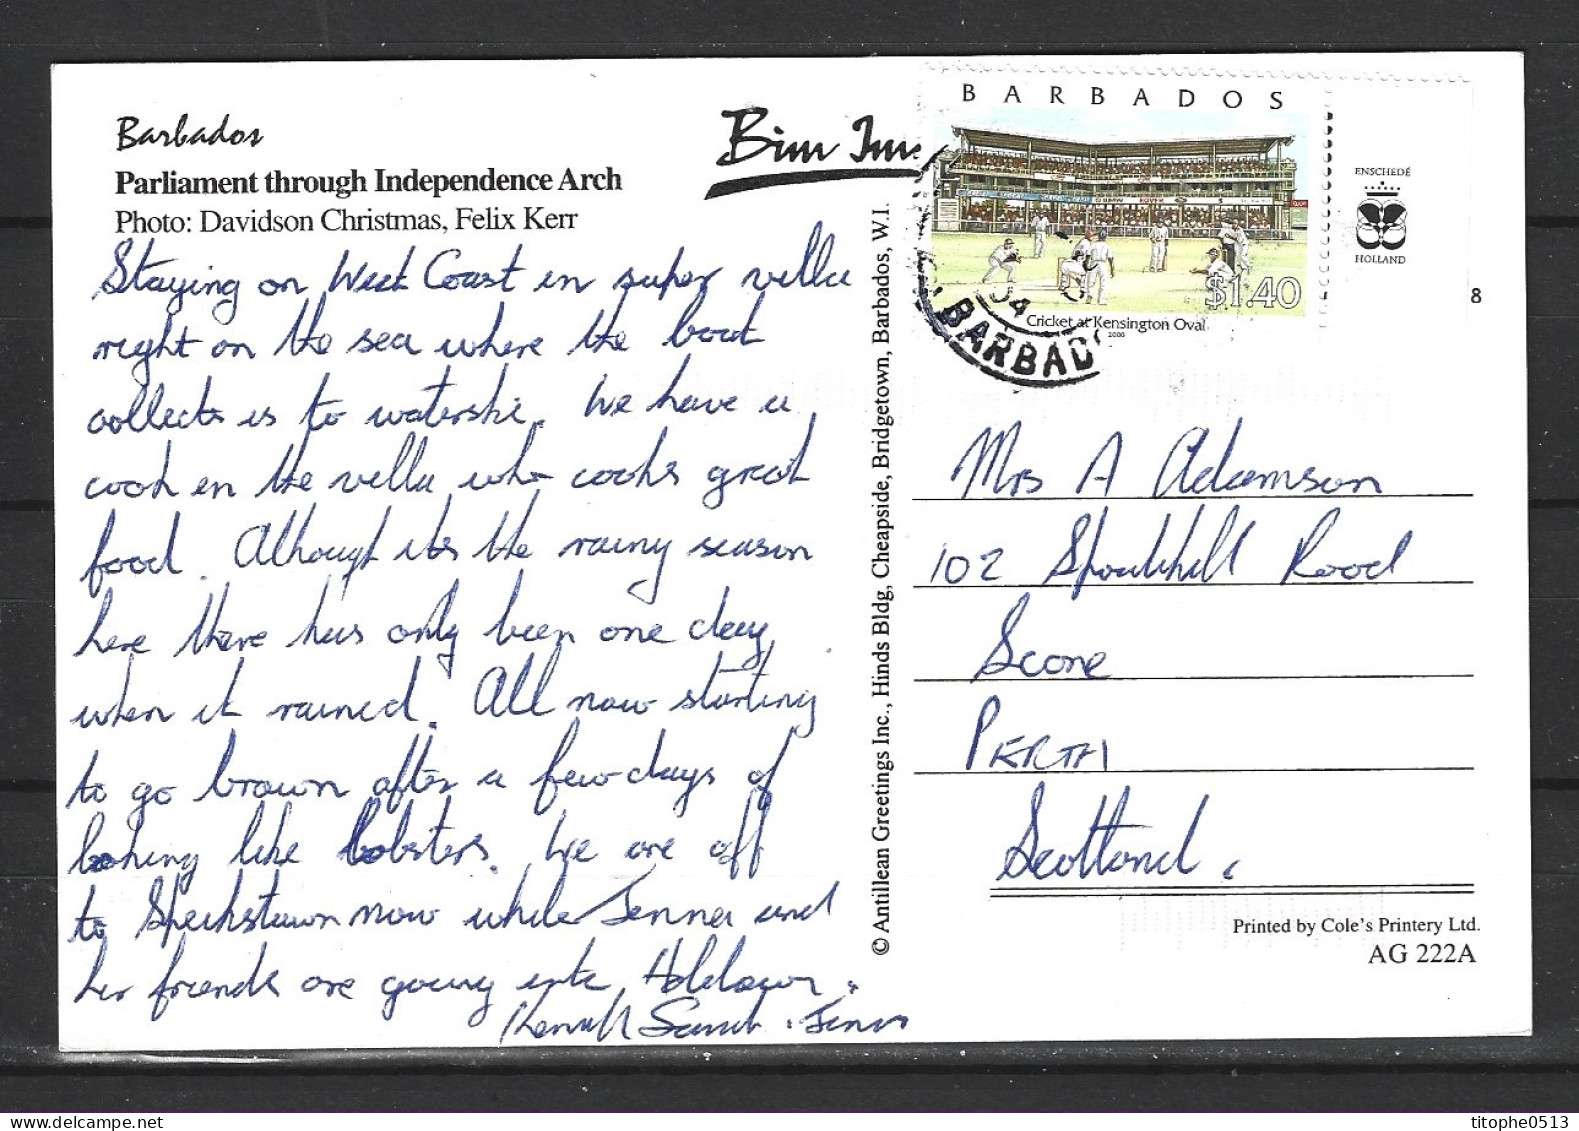 Barbados
Parliament through Independence Arch
Photo: Davidson Christmas, Felix Kerr
Bim Im
Staying on West Coast in super villa
right on the sea where the boat
collects is to waterski. We have a
cook in the villa who cooks great
food. Although its the rainy season
here there has only been one day
when it rained. All now starting
to go brown after a few days of
looking like lobsters. We are off
to Speikstown now while Jenna and
her friends are going into Holetown.
© Antillean Greetings Inc., Hinds Bldg, Cheapside, Bridgetown, Barbados, W.I.
BARBADOS
$1.40
Cricket at Kensington Oval
2000
ENSCHEDÉ
HOLLAND
8
04
BARBAD
Mrs A Adamson
102 Spoutwell Road
Scone
PERTH
Scotland.
Printed by Cole's Printery Ltd.
AG 222A
titophe0513